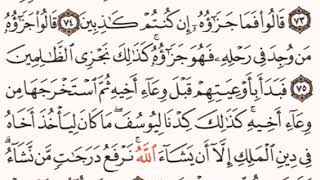 ٧٣ قَالُوا۟ فَمَا جَزَٰٓؤُهُۥٓ إِن كُنتُمْ كَـٰذِبِينَ ٧٤ قَالُوا۟ جَزَٰٓؤُهُۥ
مَن وُجِدَ فِى رَحْلِهِۦ فَهُوَ جَزَٰٓؤُهُۥ ۚ كَذَٰلِكَ نَجْزِى ٱلظَّـٰلِمِينَ
٧٥ فَبَدَأَ بِأَوْعِيَتِهِمْ قَبْلَ وِعَآءِ أَخِيهِ ثُمَّ ٱسْتَخْرَجَهَا مِن
وِعَآءِ أَخِيهِ ۚ كَذَٰلِكَ كِدْنَا لِيُوسُفَ ۖ مَا كَانَ لِيَأْخُذَ أَخَاهُ
فِى دِينِ ٱلْمَلِكِ إِلَّآ أَن يَشَآءَ ٱللَّهُ ۚ نَرْفَعُ دَرَجَـٰتٍ مَّن نَّشَآءُ ۗ